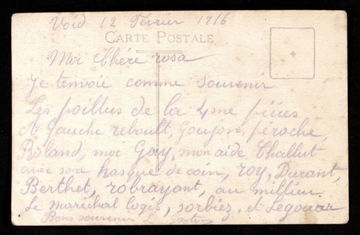 Void 12 Février 1916
CARTE POSTALE
Moi Chère rosa
Je tenvoie comme souvenir
Les poillus de la 4me pièces
A Gauche reboult, Goujon, feroche,
Roland, moi Gay, mon aide Challut
avec son hasque de coin, roy, Durant,
Berthet, robrayont, au millieu
Le maréchal logis, sorbiez, et Legouar
Bons souvenir